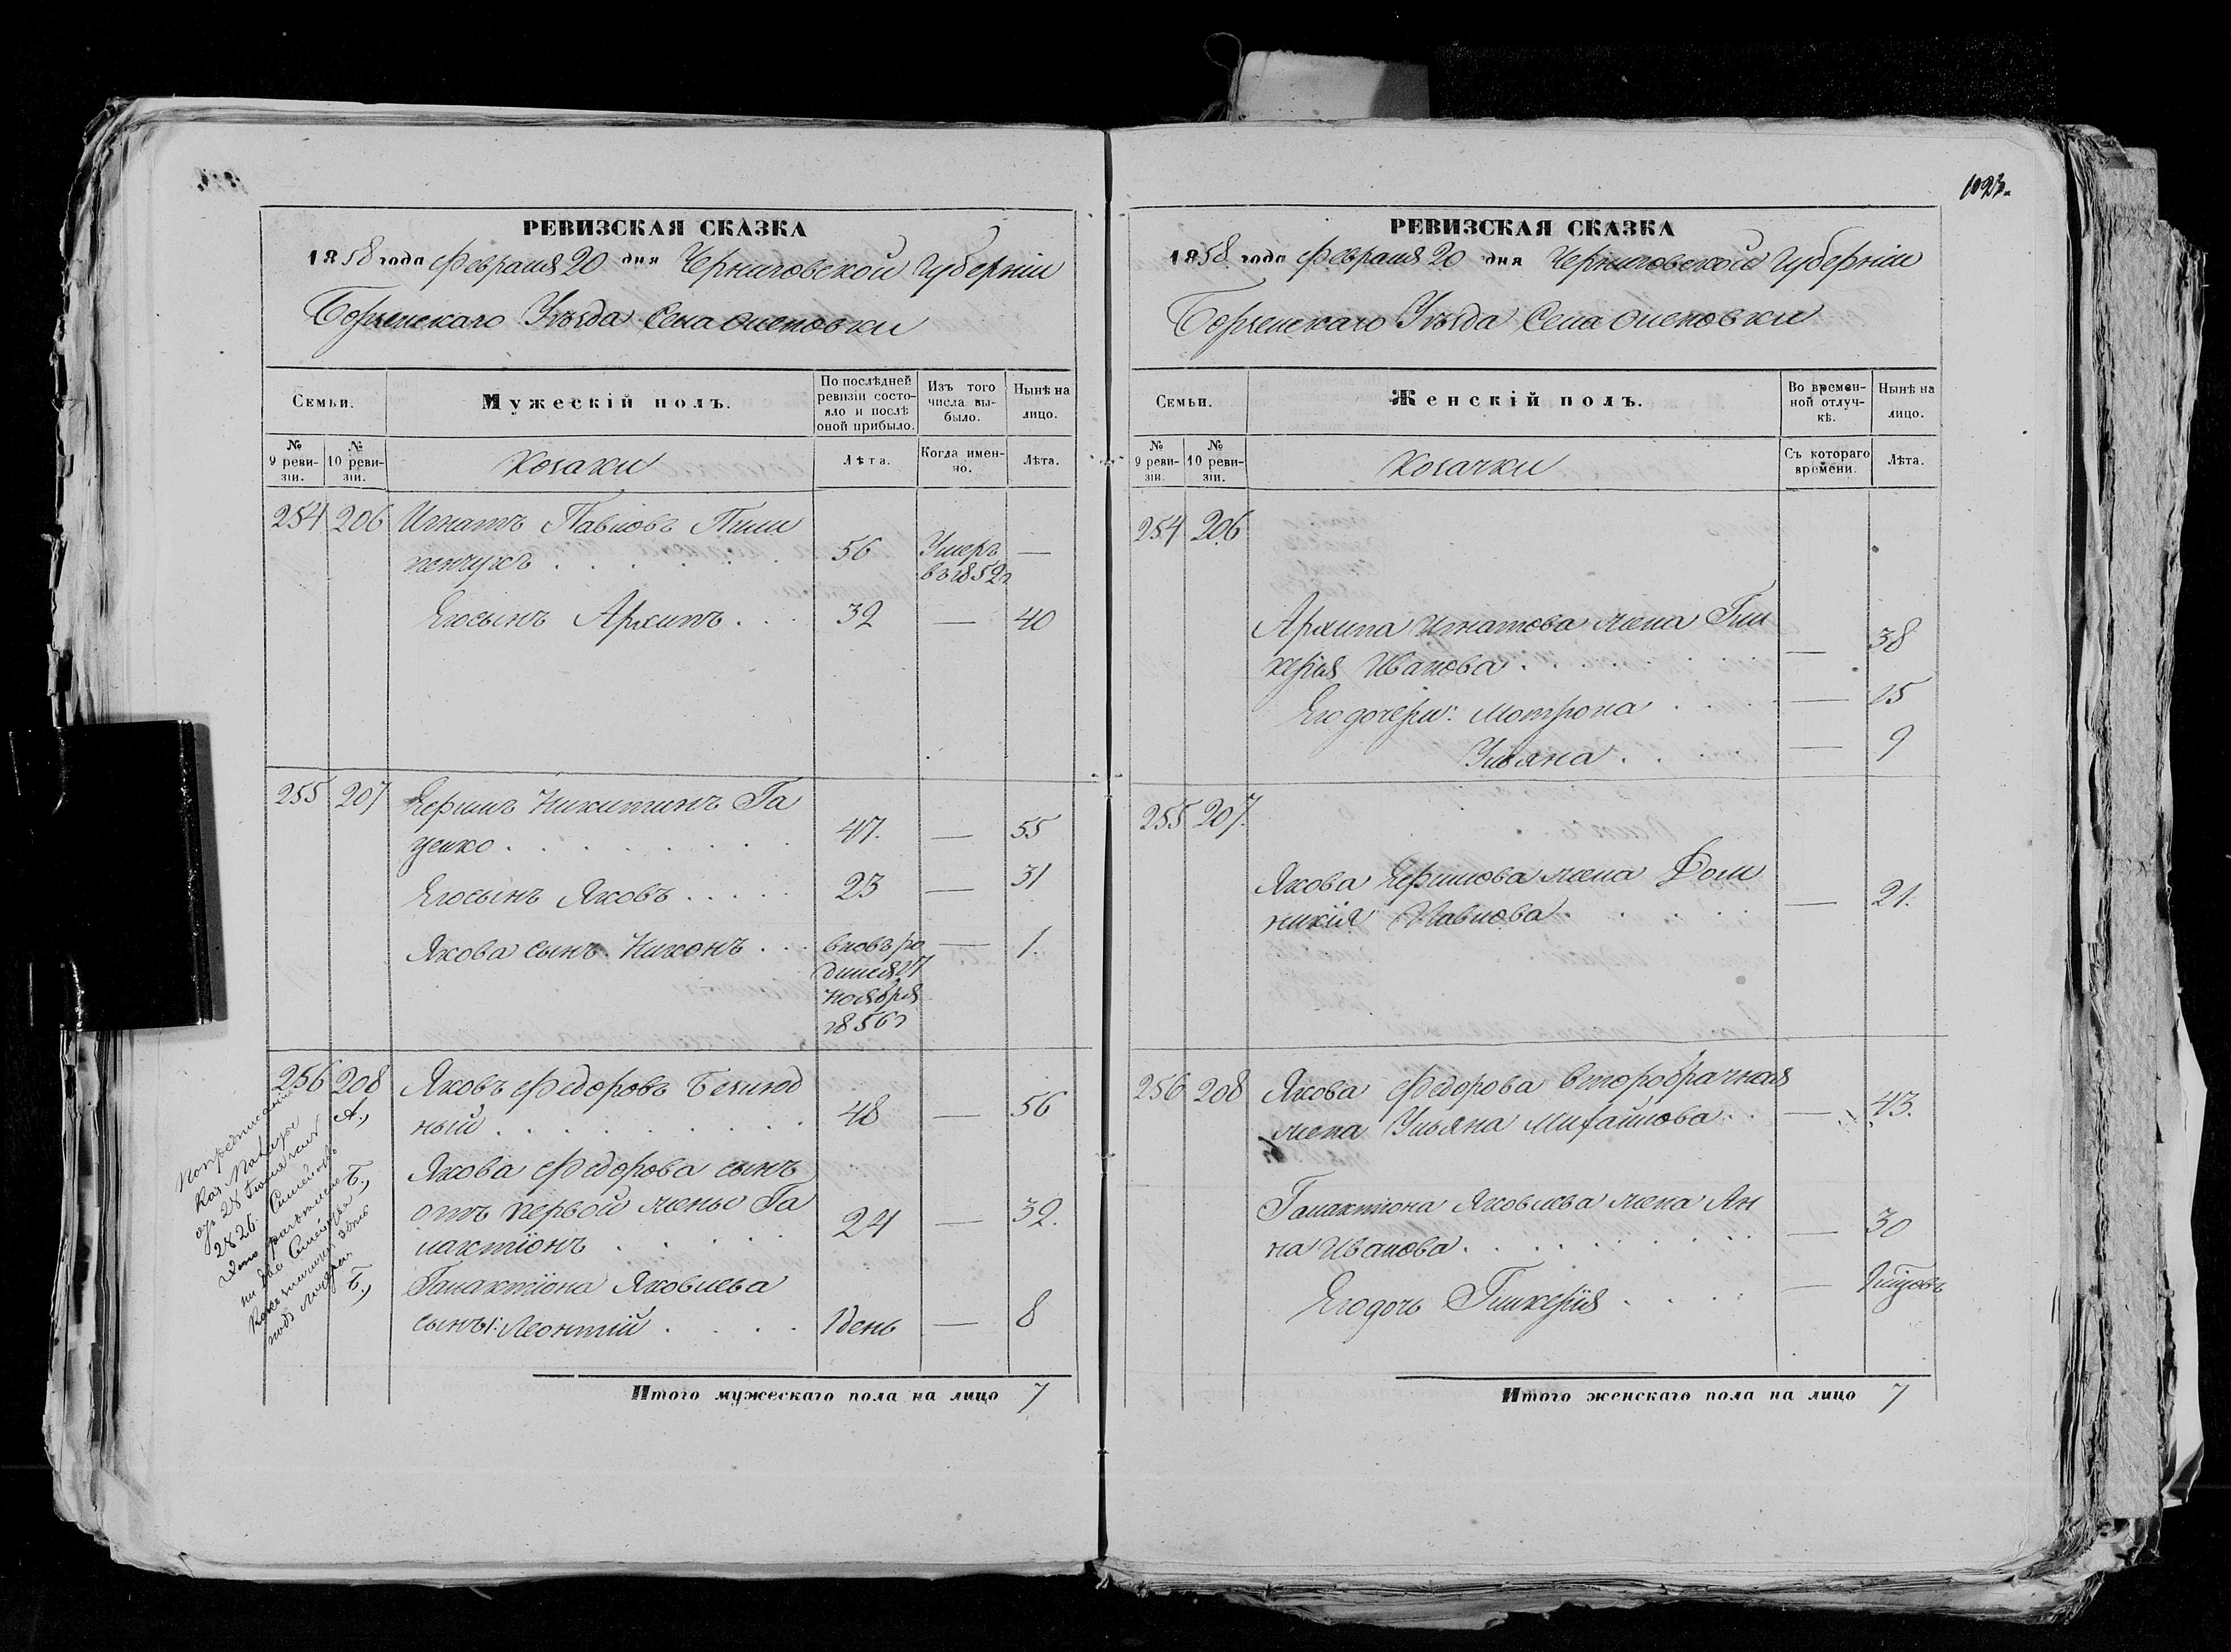 1023.
РЕВИЗСКАЯ СКАЗКА
1858 года Февраля 20 дня Черниговской Губерніи
Борзенскаго Уѣзда Села Оленовки
Семьи.
Мужескій полъ.
По послѣдней ревизіи состояло и послѣ оной прибыло.
Изъ того числа выбыло.
Нынѣ на лицо.
№ 9 ревизіи.
№ 10 ревизіи.
Козаки
Лѣта.
Когда именно.
Лѣта.
254 206 Игнатъ Павловъ Пили
пенчукъ 56 Умеръ —
въ 1852г
Его сынъ Архипъ 32 — 40
255 207 Ефимъ Никитинъ Га
ценко 47. — 55
Его сынъ Яковъ 23 — 31
Якова сынъ Никонъ вновь ро — 1.
дился 27
Ноября
1856г
256 208 Яковъ Федоровъ Безпод
А.,
ный 48 — 56
Якова Федорова сынъ
Б.,
отъ первой жены Га
лактіонъ 24 — 32.
Галактіона Яковлева
Б.,
сынъ: Леонтій 1 день — 8
Итого мужескаго пола на лицо 7
По предписанію
Каз. Палаты
2826.
на два Семейства
подъ литерою
РЕВИЗСКАЯ СКАЗКА
1858 года Февраля 20 дня Черниговской Губерніи
Борзенскаго Уѣзда Села Оленовки
Семьи.
Женскій полъ.
Во временной отлучкѣ.
Нынѣ на лицо.
№ 9 ревизіи.
№ 10 ревизіи.
Козачки
Съ котораго времени.
Лѣта.
254 206
Архипа Игнатова жена Гли
керія Иванова — 38
Его дочери: Мотрона — 15
Ульяна — 9
255 207.
Якова Ефимова жена Дом
никія Павлова — 21.
256 208 Якова Федорова второбрачная
жена Ульяна Михайлова — 43.
Галактіона Яковлева жена Ан
на Иванова — 30
Его дочь Гликерія —
Итого женскаго пола на лицо 7